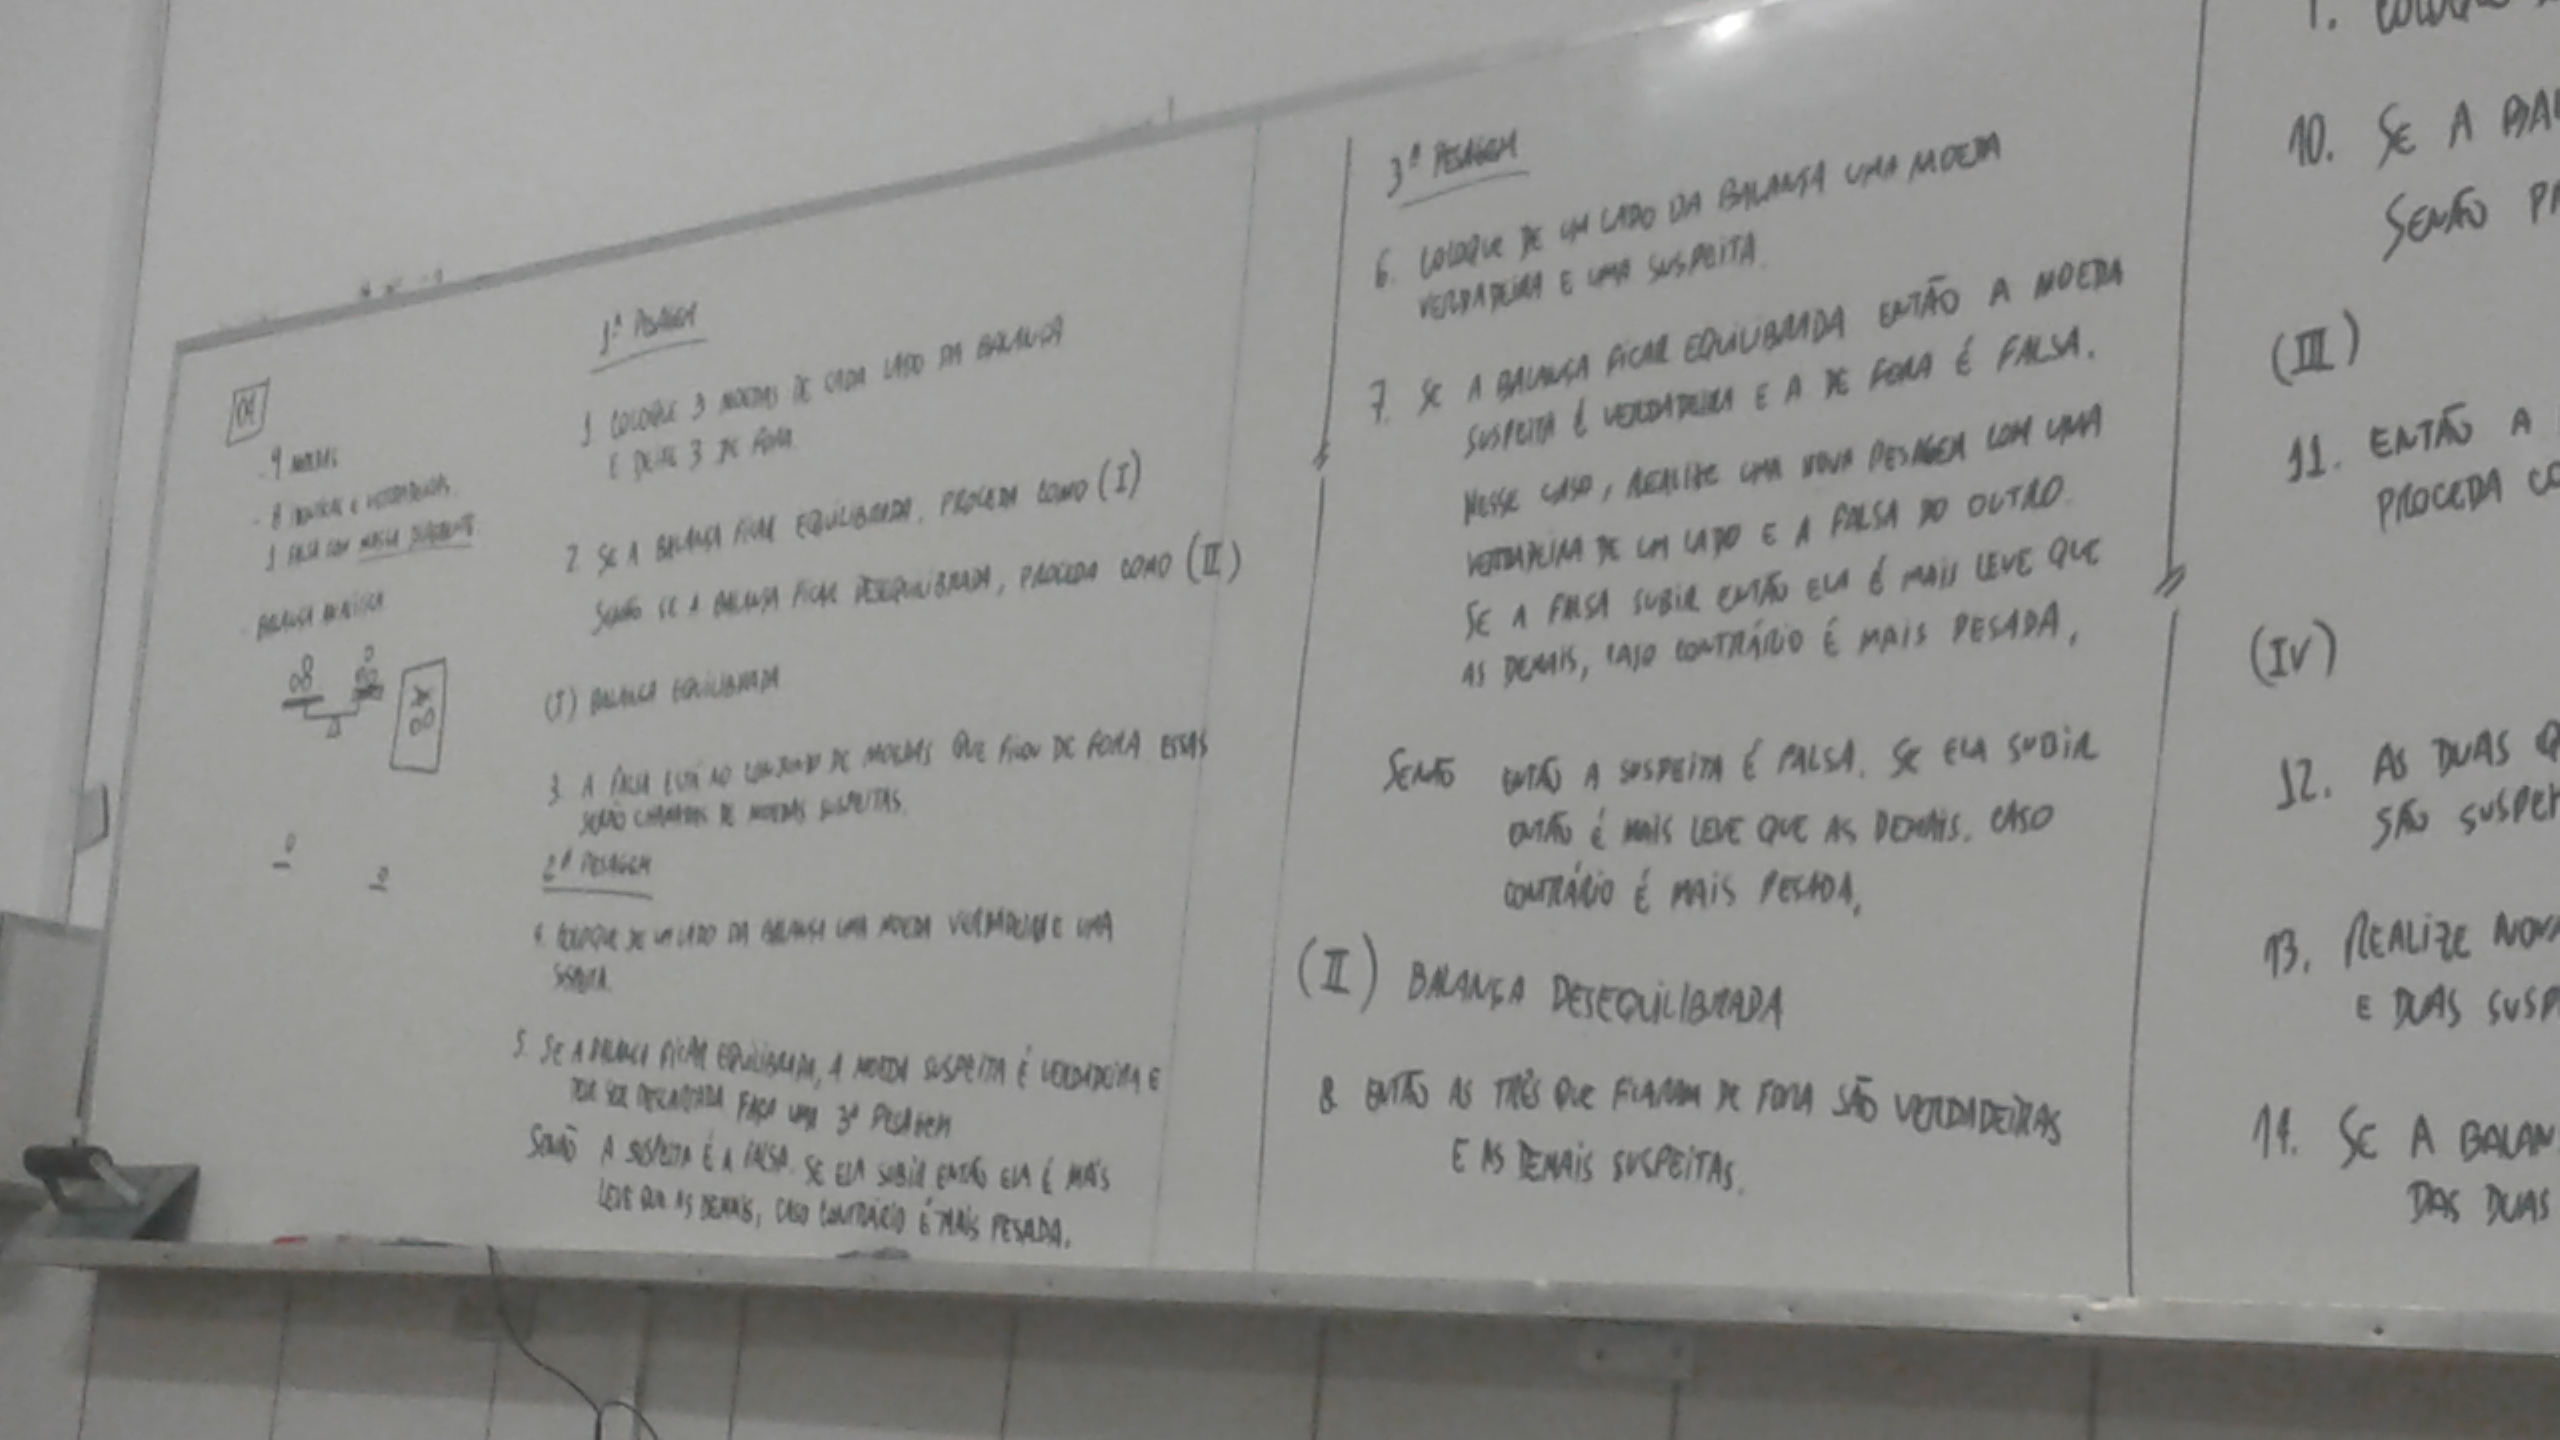 01
- 9 MOEDAS
- 8 IDÊNTICAS E VERDADEIRAS.
1 FALSA COM MASSA DIFERENTE
- BALANÇA
1ª PESAGEM
1 COLOQUE 3 MOEDAS DE CADA LADO DA BALANÇA
E DEIXE 3 DE FORA
2 SE A BALANÇA FICAR EQUILIBRADA, PROCEDA COMO (I)
SENÃO SE A BALANÇA FICAR DESEQUILIBRADA, PROCEDA COMO (II)
(I) BALANÇA EQUILIBRADA
3. A FALSA ESTÁ NO CONJUNTO DE MOEDAS QUE FICOU DE FORA ESSAS
SERÃO CHAMADAS DE MOEDAS SUSPEITAS.
2ª PESAGEM
4. COLOQUE DE UM LADO DA BALANÇA UMA MOEDA VERDADEIRA E UMA
SUSPEITA.
5. SE A BALANÇA FICAR EQUILIBRADA, A MOEDA SUSPEITA É VERDADEIRA E
SER DESCARTADA FAÇA UMA 3ª PESAGEM
SENÃO A SUSPEITA É A FALSA. SE ELA SUBIR ENTÃO ELA É MAIS
LEVE QUE AS DEMAIS, CASO CONTRÁRIO É MAIS PESADA.
3ª PESAGEM
6. COLOQUE DE UM LADO DA BALANÇA UMA MOEDA
VERDADEIRA E UMA SUSPEITA.
7. SE A BALANÇA FICAR EQUILIBRADA ENTÃO A MOEDA
SUSPEITA É VERDADEIRA E A DE FORA É FALSA.
NESSE CASO, REALIZE UMA NOVA PESAGEM COM UMA
VERDADEIRA DE UM LADO E A FALSA DO OUTRO.
SE A FALSA SUBIR ENTÃO ELA É MAIS LEVE QUE
AS DEMAIS, CASO CONTRÁRIO É MAIS PESADA.
SENÃO ENTÃO A SUSPEITA É FALSA. SE ELA SUBIR
ENTÃO É MAIS LEVE QUE AS DEMAIS. CASO
CONTRÁRIO É MAIS PESADA.
(II) BALANÇA DESEQUILIBRADA
8 ENTÃO AS TRÊS QUE FICARAM DE FORA SÃO VERDADEIRAS
E AS DEMAIS SUSPEITAS.
10. SE A
SENÃO
(III)
11. ENTÃO A
PROCEDA
(IV)
12. AS DUAS
SÃO
13. REALIZE
E DUAS
14. SE A
DAS DUAS